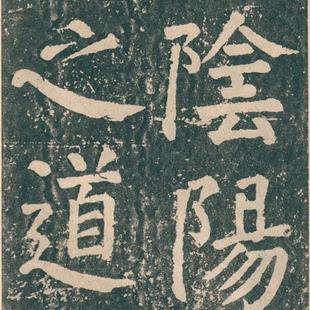 陰陽
之道